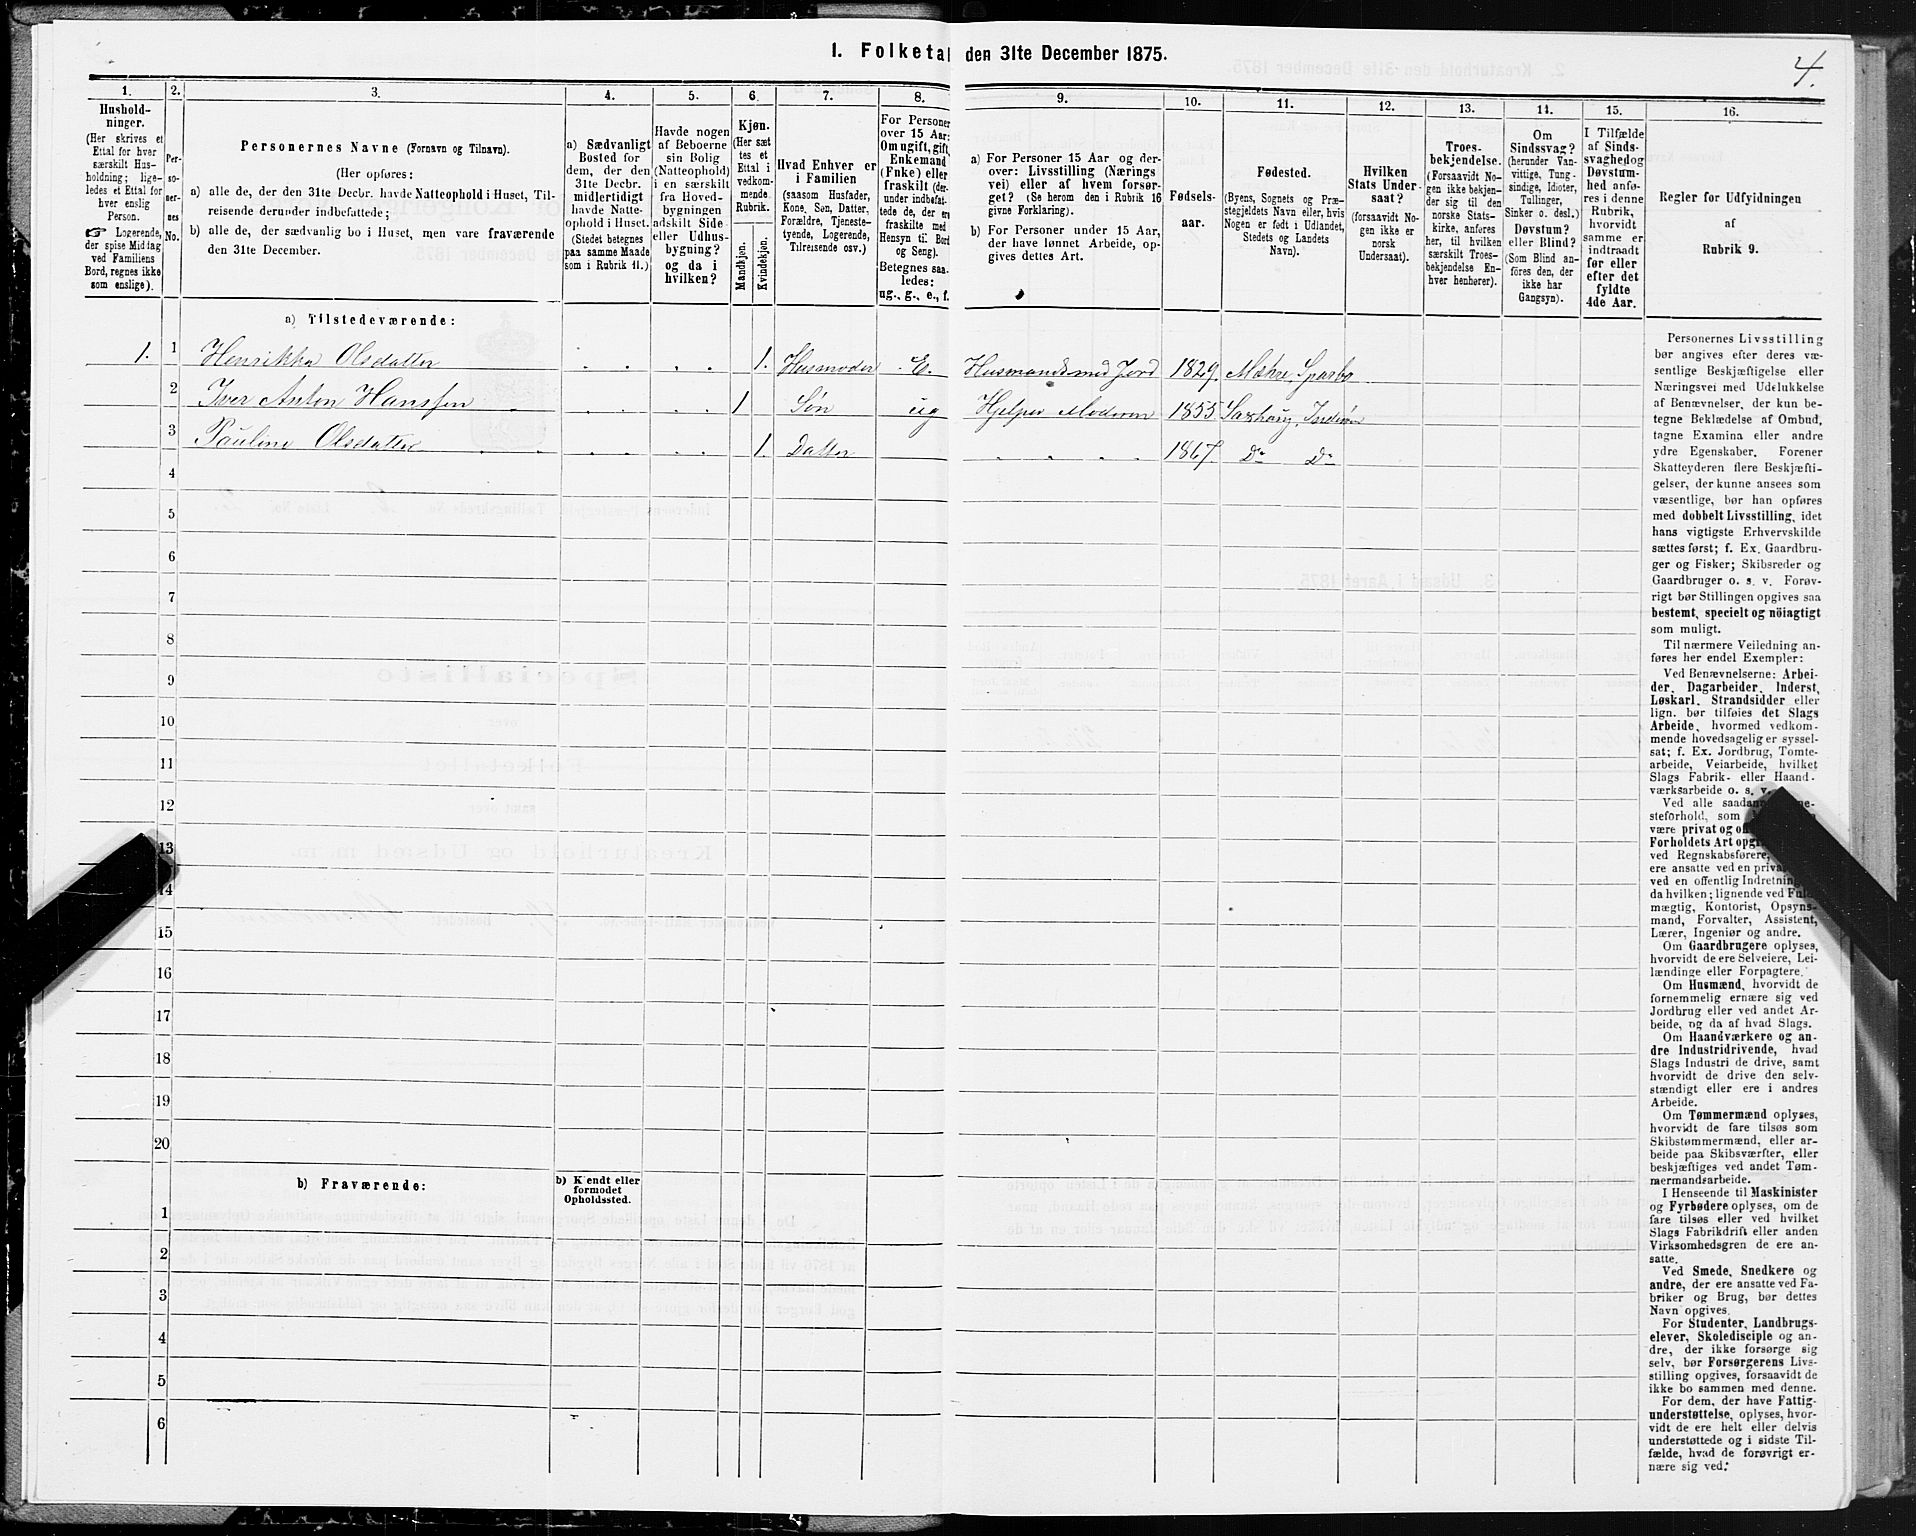 1. Folketal den 31te December 1875.
4.
1.
Hushold-
ninger.
(Her skrives et
Ettal for hver
særskilt Hus-
holdning; lige-
ledes et Ettal for
hver enslig
Person.
☞ Logerende,
der spise Middag
ved Familiens
Bord, regnes ikke
som enslige).
2.
Per-
so-
ner-
nes
No.
3.
Personernes Navne (Fornavn og Tilnavn).
(Her opføres:
a) alle de, der den 31te Decbr. havde Natteophold i Huset, Til-
reisende derunder indbefattede;
b) alle de, der sædvanlig bo i Huset, men vare fraværende
den 31te December.
4.
a) Sædvanligt
Bosted for
dem, der den
31te Decbr.
midlertidigt
havde Natte-
ophold i Huset.
(Stedet betegnes
paa samme Maade
som i Rubrik 11.)
5.
Havde nogen
af Beboerne
sin Bolig
(Natteophold)
i en særskilt
fra Hoved-
bygningen
adskilt Side-
eller Udhus-
bygning?
og da i
hvilken?
6.
Kjøn.
(Her sæt-
tes et
Ettal i
vedkom-
mende
Rubrik.
Mandkjøn.
Kvindekjøn.
7.
Hvad Enhver er
i Familien
(saasom Husfader,
Kone, Søn, Datter,
Forældre, Tjeneste-
tyende, Logerende,
Tilreisende osv.)
8.
For Personer
over 15 Aar:
Om ugift, gift,
Enkemand
(Enke) eller
fraskilt (der-
under indbefat-
tede de, der ere
fraskilte med
Hensyn til Bord
og Seng).
Betegnes saa-
ledes:
ug., g., e., f.
9.
a) For Personer 15 Aar og der-
over: Livsstilling (Nærings-
vei) eller af hvem forsør-
get? (Se herom den i Rubrik 16
givne Forklaring).
b) For Personer under 15 Aar,
der have lønnet Arbeide, op-
gives dettes Art.
10.
Fødsels-
aar.
11.
Fødested.
(Byens, Sognets og Præ-
stegjeldets Navn eller, hvis
Nogen er født i Udlandet,
Stedets og Landets
Navn).
12.
Hvilken
Stats Under-
saat?
(forsaavidt No-
gen ikke er
norsk
Undersaat).
13.
Troes-
bekjendelse.
(Forsaavidt No-
gen ikke bekjen-
der sig til den
norske Stats-
kirke, anføres
her, til hvilken
særskilt Troes-
bekjendelse En-
hver henhører).
14.
Om
Sindssvag?
(herunder Van-
vittige, Tung-
sindige, Idioter,
Tullinger,
Sinker o. desl.)
Døvstum?
eller Blind?
(Som Blind an-
føres den, der
ikke har
Gangsyn).
15.
I Tilfælde
af Sinds-
svaghed og
Døvstum-
hed anfø-
res i denne
Rubrik,
hvorvidt
samme er
indtraadt
før eller
efter det
fyldte
4de Aar.
16.
Regler for Udfyldningen
af
Rubrik 9.
a) Tilstedeværende:
1. 1 Henrikka Olsdatter 1. Husmoder E. Husmands med Jord 1829. Mære, Sparbo
2 Iver Anton Hanssen 1 Søn ug Hjelper Moderen 1855. Saxhaug, Inderøen
3 Pauline Olsdatter 1. Datter 1867. Do Do
4
5
6
7
8
9
10
11
12
13
14
15
16
17
18
19
20
b) Fraværende:
b) Kjendt eller
formodet
Opholdssted.
1
2
3
4
5
6
Personernes Livsstilling
bør angives efter deres væ-
sentlige Beskjæftigelse eller
Næringsvei med Udelukkelse
af Benævnelser, der kun be-
tegne Beklædelse af Ombud,
tagne Examina eller andre
ydre Egenskaber. Forener
Skatteyderen flere Beskjæfti-
gelser, der kunne ansees som
væsentlige, bør han opføres
med dobbelt Livsstilling, idet
hans vigtigste Erhvervskilde
sættes først; f. Ex. Gaardbru-
ger og Fisker; Skibsreder og
Gaardbruger o. s. v. Forøv-
rigt bør Stillingen opgives saa
bestemt, specielt og nöiagtigt
som muligt.
Til nærmere Veiledning an-
føres her endel Exempler:
Ved Benævnelserne: Arbei-
der, Dagarbeider, Inderst,
Løskarl, Strandsidder eller
lign. bør tilføies det Slags
Arbeide, hvormed vedkom-
mende hovedsagelig er syssel-
sat; f. Ex. Jordbrug, Tomte-
arbeide, Veiarbeide, hvilket
Slags Fabrik- eller Haand-
værksarbeide o. s. v.
Ved alle saadanne
steforhold, som
være privat og
Forholdets Art
ved Regnskabsførere,
ere ansatte ved en
ved en offentlig Indretning
da hvilken; lignende ved Fuld-
mægtig, Kontorist, Opsyns-
mand, Forvalter, Assistent,
Lærer, Ingeniør og andre.
Om Gaardbrugere oplyses,
hvorvidt de ere Selveiere, Lei-
lændinge eller Forpagtere.
Om Husmænd, hvorvidt de
fornemmelig ernære sig ved
Jordbrug eller ved andet Ar-
beide, og da af hvad Slags.
Om Haandværkere og an-
dre Industridrivende, hvad
Slags Industri de drive, samt
hvorvidt de drive den selv-
stændigt eller ere i andres
Arbeide.
Om Tømmermænd oplyses,
hvorvidt de fare tilsøs som
Skibstømmermænd, eller ar-
beide paa Skibsværfter, eller
beskjæftiges ved andet Tøm-
mermandsarbeide.
I Henseende til Maskinister
og Fyrbødere oplyses, om de
fare tilsøs eller ved hvilket
Slags Fabrikdrift eller anden
Virksomhedsgren de ere an-
satte.
Ved Smede, Snedkere og
andre, der ere ansatte ved Fa-
briker og Brug, bør dettes
Navn opgives.
For Studenter, Landbrugs-
elever, Skoledisciple og an-
dre, der ikke forsørge sig
selv, bør Forsørgerens Livs-
stilling opgives, forsaavidt de
ikke bo sammen med denne.
For dem, der have Fattig-
understøttelse, oplyses, hvor-
vidt de ere helt eller delvis
understøttede og i sidste Til-
fælde, hvad de forøvrigt er-
nære sig ved.